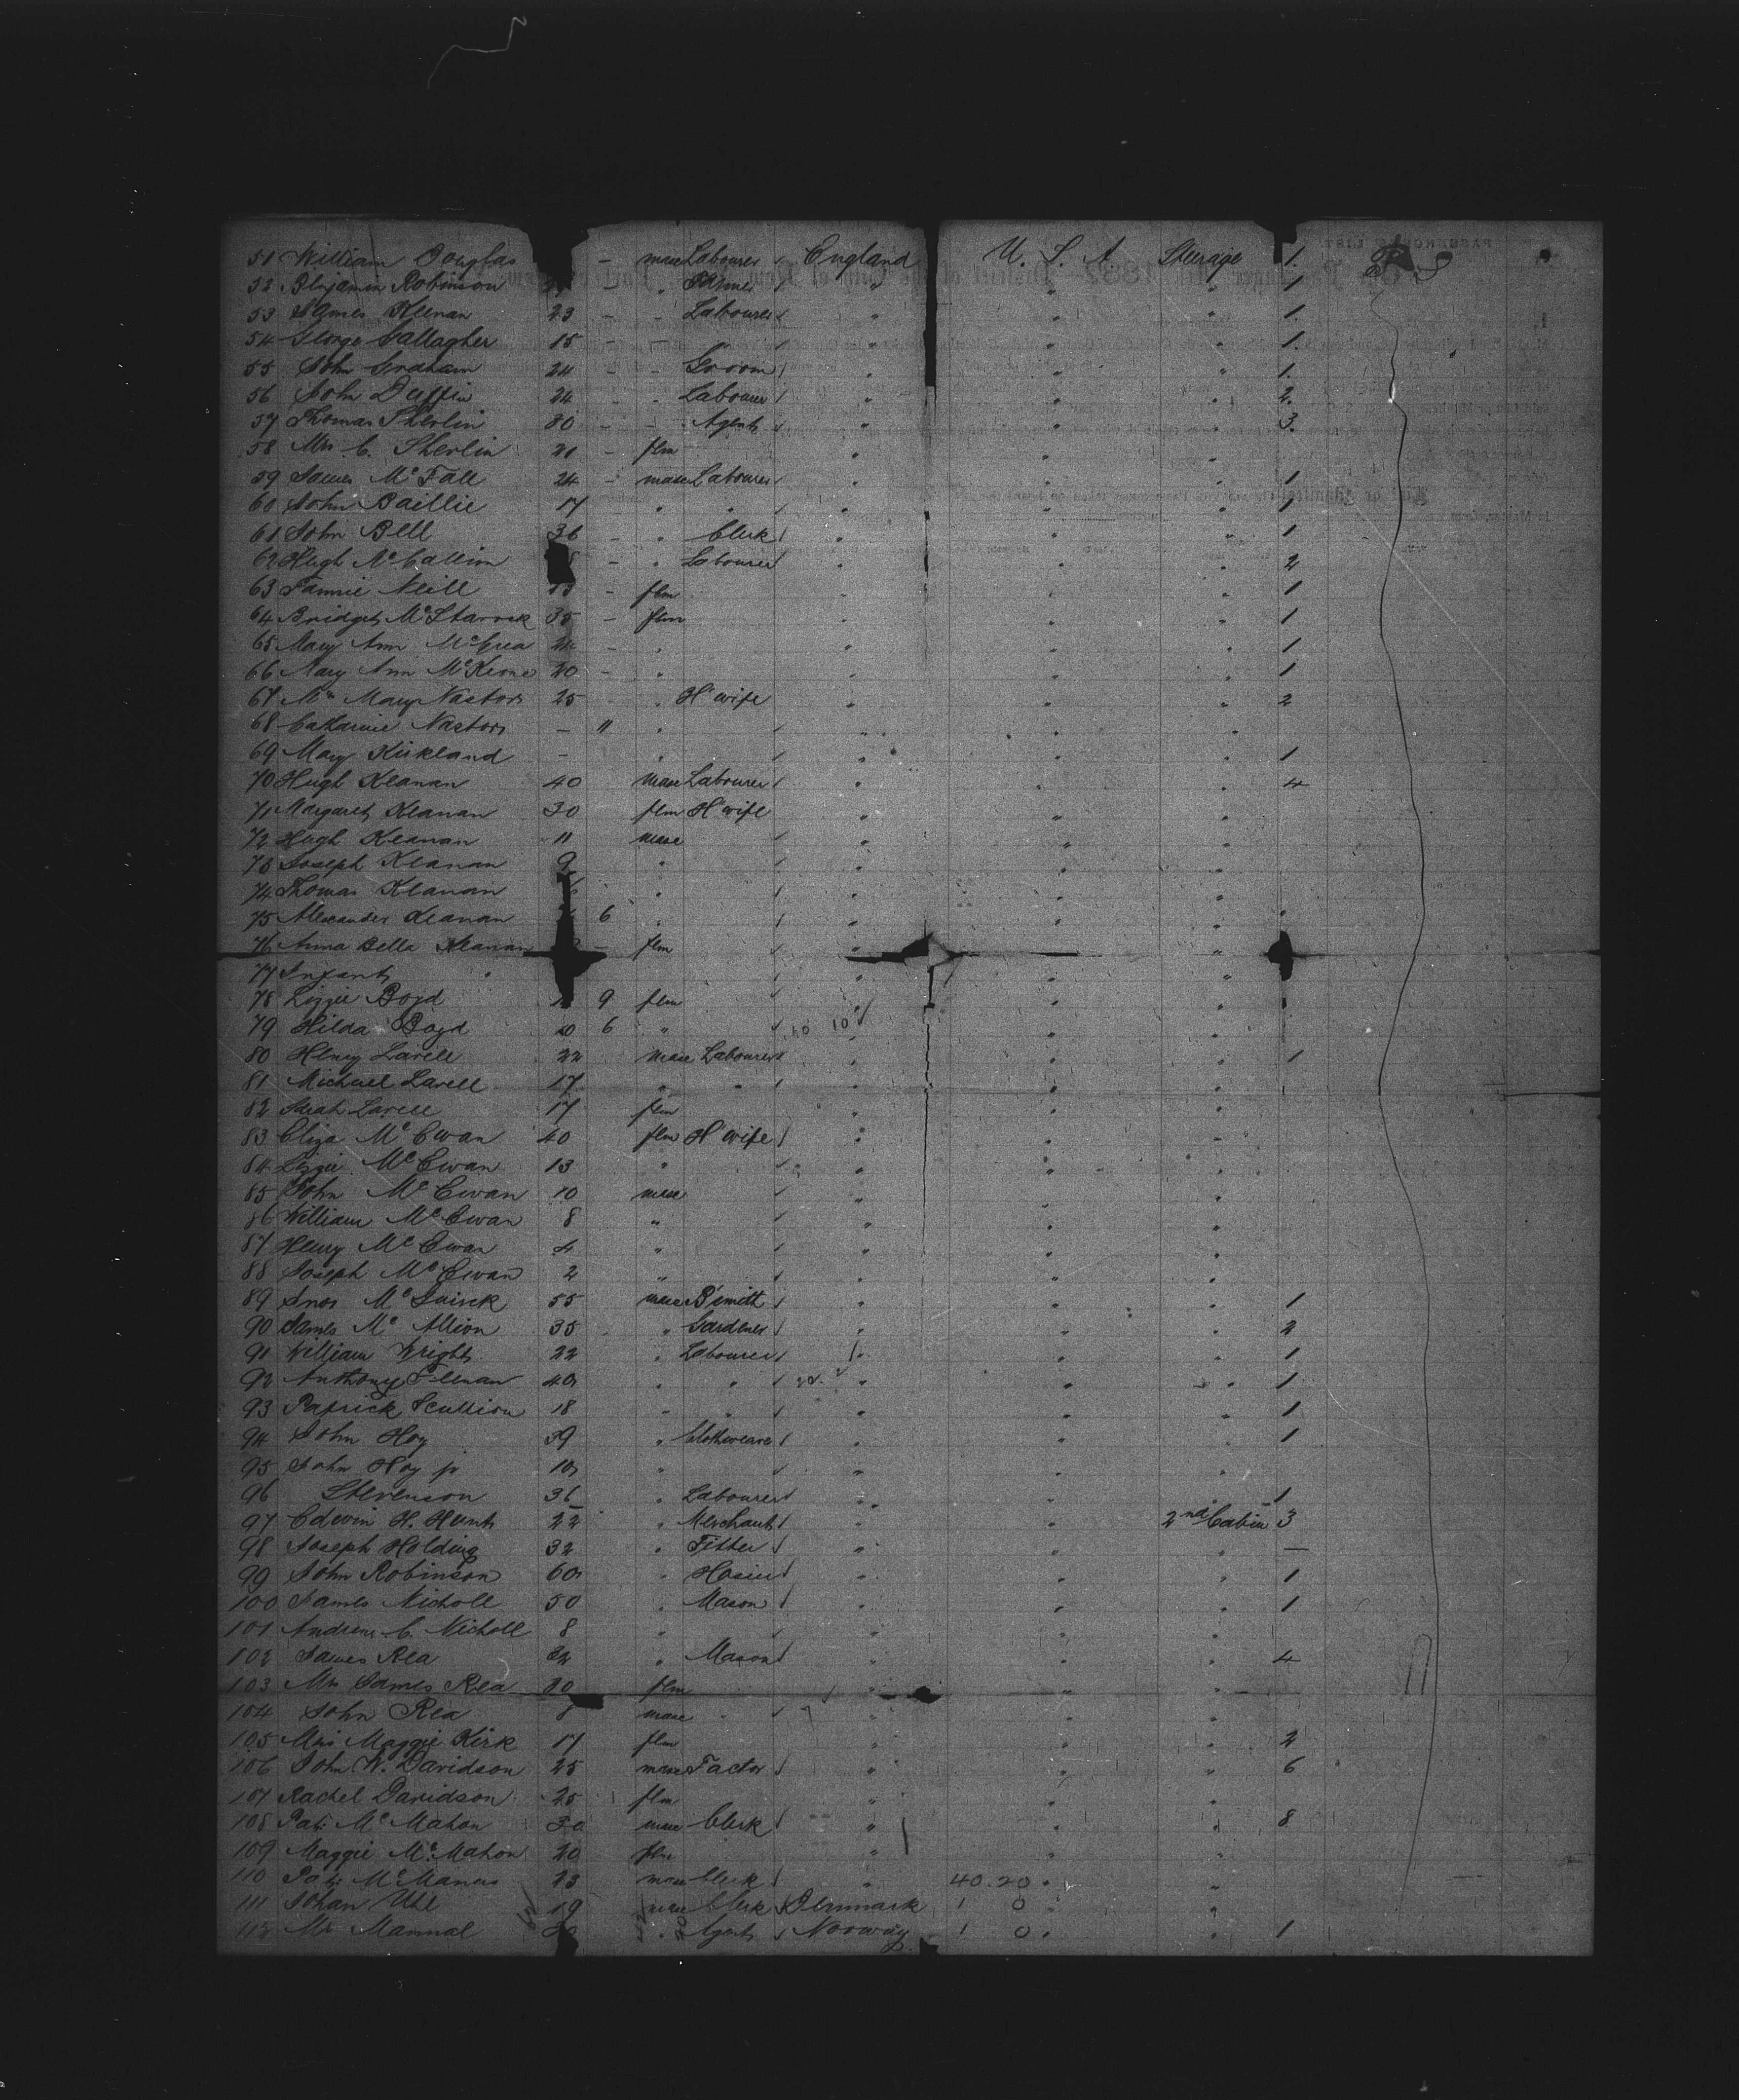 51 William Douglas - mase Labourer England U. S. A Steerage 1.
52 Benjamin Robinson - " " " " 1
53 James Keenan 23 - " Labourer " " " 1.
54 George Gallagher 15 - - " " " 1.
55 John Graham 24 - - Groom " " " 1.
56 John Duffin 24 - " Labourer " " " 2.
57 Thomas Sherlin 30 - - Agent " " " 3.
58 Mrs C. Sherlin 21 - flm " " "
59 James McFall 24 - mase Labourer " " " 1
60 John Baillie 17 " " " " " 1
61 John Bell 36 - " Clerk " " " 1
62 Hugh McCallion 8 - " Labourer " " " 2
63 Fannie Neill - flm " " " 1
64 Bridget 35 - flm " " " 1
65 Mary Ann McCrea 24 - " " " " 1
66 Mary Ann McKeone 20 - " " " " 1
67 Mrs Mary Nastors 25 " H wife " " " 2
68 Catharine Nastors - 11 " " " "
69 Mary Kirkland - " " " " 1
70 Hugh Keanan 40 mase Labourer " " " 4
71 Margaret Keanan 30 flm H wife " " "
72 Hugh Keanan 11 mase " " "
73 Joseph Keanan 9 " " " "
74 Thomas Keanan " " " "
75 Alexander Keanan 6 " " " "
76 Anna Bella Keanan - flm " "
77 Infant " " "
78 Lizzie Boyd 9 flm " " "
79 Hilda Boyd 6 " 10 10 " "
80 Henry Lavell 22 mase Labourer " " " 1
81 Michael Lavell 17 " " " " "
82 Sarah Lavell 17 flm " " "
83 Eliza McEwan 40 flm H wife " " "
84 Lizzie McEwan 13 " " " "
85 John McEwan 10 mase " " "
86 William McEwan 8 " " " "
87 Henry McEwan 4 " " " "
88 Joseph McEwan 2 " " " "
89 55 mase B'smith " " " 1
90 James McAllion 35 " Gardener " " " 2
91 William Wright 22 " Labourer " " " 1
92 Anthony 40 " " " " " 1
93 Patrick Scullion 18 " " " " " 1
94 John Hoy 39 " " " " 1
95 John Hoy jr 10 " " " "
96 Stevenson 36 " Labourer " " " 1
97 Edwin H. Hunt 22 " Merchant " " 2nd Cabin 3
98 Joseph Holding 32 " Fitter " " " —
99 John Robinson 60 " Hosier " " " 1
100 James Nicholl 50 " Mason " " " 1
101 Andrew C. Nicholl 8 " " " "
102 James Rea 32 " Mason " " " 4
103 Mrs James Rea 30 flm " " "
104 John Rea 8 mase " " " "
105 Miss Maggie Kirk 17 flm " " " 2
106 John W. Davidson 25 mase Factor " " " 6
107 Rachel Davidson 25 flm " " "
108 Pat. McMahon 30 mase Clerk " " " 8
109 Maggie McMahon 20 flm " " "
110 Pat. McManus 23 mase Clerk " 40.20 " "
111 Johan Uhl 19 mase Clerk Denmark 1 0 " "
112 Mr Mannal 30 " Agent Norway 1 0 " " 1